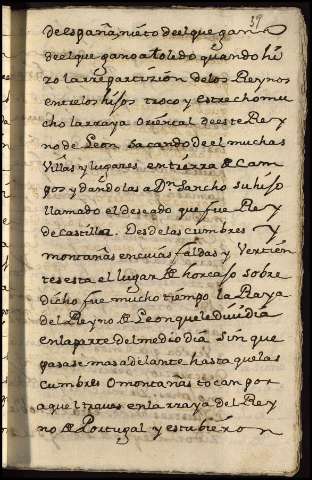 37
de españa, nieto de el que gano
de el que gano a toledo quando hi
zo la rrepartizión de los Reynos
entre los hijos troco y estrecho mu
cho la rraya oriental de este Rey
no de Leon sacando de el muchas
Villas y lugares en tierra de Cam
pos y dándolas a Dn. Sancho su hijo
llamado el deseado que fue Rey
de Castilla. Des de las cumbres y
montañas en cuias faldas y Vertien
tes esta el lugar de horcajo sobre
dicho fue mucho tiempo la Raya
del Reyno de Leon que le dividia
en la parte del medio dia sin que
pasase mas adelante hasta que las
cumbres o montañas tocan por
aquel traues en la rraya del Rey
no de Portugal y estubieron